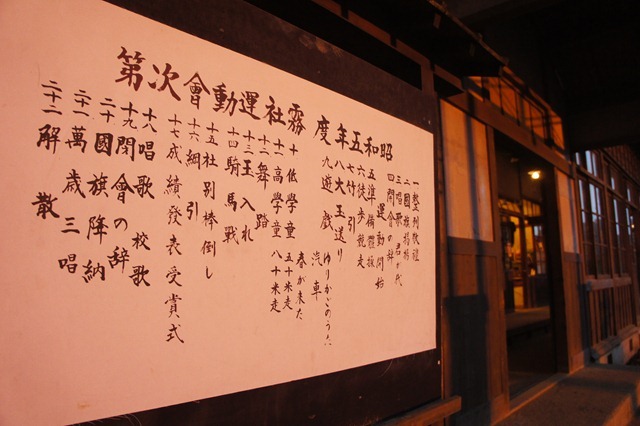 昭和五年度 霧社運動會次第
一 整列敬禮
二 國旗揭揚
三 唱歌 君が代
四 開會の辞
運動開始
五 準備體操
六 徒歩競走
七 竹引
八 大玉送り
九 遊戯 ゆりかごのうた
汽車
春が来た
十 低学童 五十米走
十一 高学童 八十米走
十二 舞踏
十三 玉入れ
十四 騎馬戦
十五 社別棒倒し
十六 綱引
十七 成績發表受賞式
十八 唱歌 校歌
十九 閉會の辞
二十 國旗降納
二十一 萬歳三唱
二十二 解散